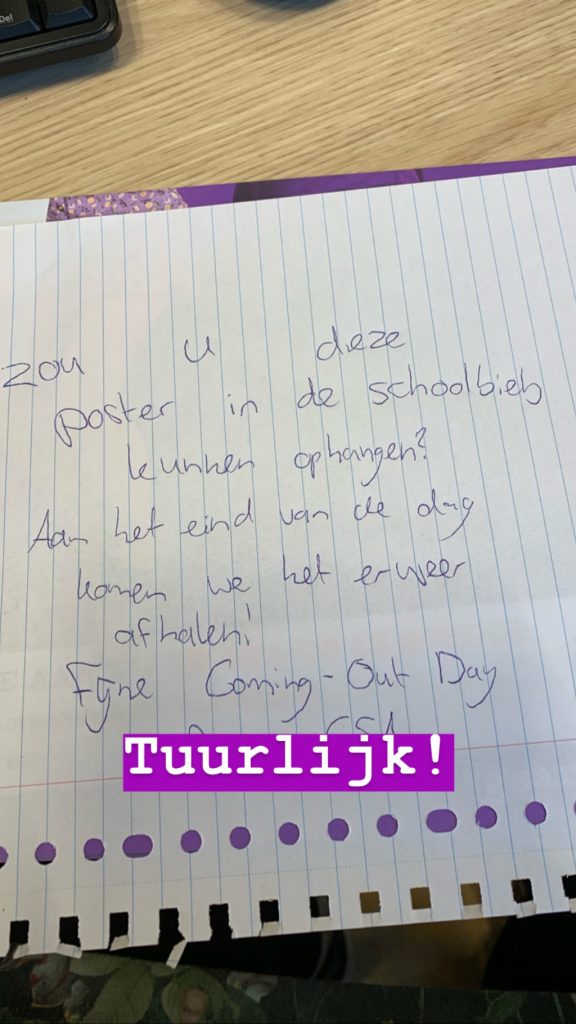 Del
zou u deze
poster in de schoolbieb
kunnen ophangen?
Aan het eind van de dag
komen we het er weer
afhalen!
Fijne Coming-Out Day
GSA
Tuurlijk!